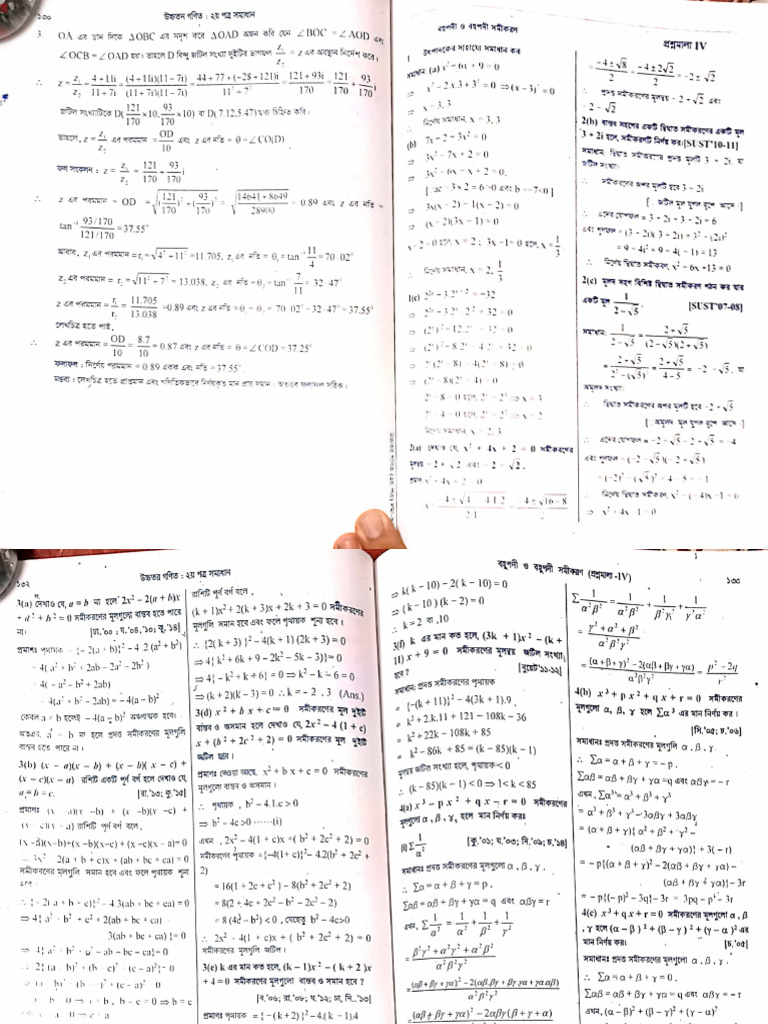 ১৩০
উচ্চতন গণিত : ২য় পত্র সমাধান
3. OA এর ডান দিকে ΔOBC এর সদৃশ করে ΔOAD অঙ্কন করি যেন ∠BOC = ∠AOD এবং
∠OCB = ∠OAD হয়। তাহলে D বিন্দু জটিল সংখ্যা দুইটির ভাগফল z₁/z₂ = z এর অবস্থান নির্দেশ করে।
∴ z = z₁/z₂ = (4+11i)/(11+7i) = (4+11i)(11−7i)/(11+7i)(11−7i) = (44+77+(−28+121)i)/(11²+7²) = (121+93i)/170 = 121/170 + 93/170 i
জটিল সংখ্যাটিকে D(121/170×10, 93/170×10) বা D(7.12,5.47)দ্বারা চিহ্নিত করি।
তাহলে, z = z₁/z₂ এর পরমমান = OD/10 এবং z এর নতি = θ = ∠CO(D)
ফল সংকলন : z = z₁/z₂ = 121/170 + 93/170 i
∴ z এর পরমমান = OD = √((121/170)² + (93/170)²) = √((14641+8649)/28900) = 0.89 এবং z এর নতি =
tan⁻¹ (93/170)/(121/170) = 37.55°
আবার, z₁ এর পরমমান = r₁ = √(4²+11²) = 11.705, z₁ এর নতি = θ₁ = tan⁻¹ 11/4 = 70·02°
z₂ এর পরমমান = r₂ = √(11²+7²) = 13.038, z₂ এর নতি = θ₂ = tan⁻¹ 7/11 = 32·47°
z এর পরমমান = r₁/r₂ = 11.705/13.038 = 0.89 এবং z এর নতি = θ₁ − θ₂ = 70·02° − 32·47° = 37.55°
লেখচিত্র হতে পাই,
∴ z এর পরমমান = OD/10 = 8.7/10 = 0.87 এবং z এর নতি = θ = ∠COD = 37.25°
ফলাফল : নির্ণেয় পরমমান = 0.89 একক এবং নতি = 37.55°
মন্তব্য : লেখচিত্র হতে প্রাপ্তমান এবং গাণিতিকভাবে নির্ণয়কৃত মান প্রায় সমান। অতএব ফলাফল সঠিক।
বহুপদী ও বহুপদী সমীকরণ
প্রশ্নমালা IV
1 উৎপাদকের সাহায্যে সমাধান কর
সমাধান: (a) x² − 6x + 9 = 0
⇒ x² − 2.x.3 + 3² = 0 ⇒ (x − 3)² = 0
⇒ x = 3, 3
∴ নির্ণেয় সমাধান, x = 3, 3
(b) 7x − 2 − 3x² = 0
⇒ 3x² − 7x + 2 = 0
⇒ 3x² − 6x − x + 2 = 0,
[∵ ac = 3×2 = 6 >0 এবং b = −7<0 ]
⇒ 3x(x − 2) − 1(x − 2) = 0
⇒ (x − 2)(3x − 1) = 0
x − 2 = 0 হলে, x = 2 ; 3x −1= 0 হলে, x = 1/3
∴ নির্ণেয় সমাধান, x = 2, 1/3
1(c) 2²ˣ − 3.2ˣ⁺² = −32
⇒ 2²ˣ − 3.2ˣ.2² + 32 = 0
⇒ (2ˣ)² − 12.2ˣ + 32 = 0
⇒ (2ˣ)² − 8.2ˣ − 4.2ˣ + 32 = 0
⇒ 2ˣ(2ˣ − 8) − 4(2ˣ − 8) = 0
⇒ (2ˣ − 8)(2ˣ − 4) = 0
2ˣ − 8 = 0 হলে, 2ˣ = 2³ ⇒ x = 3
2ˣ − 4 = 0 হলে, 2ˣ = 2² ⇒ x = 2
∴ নির্ণেয় সমাধান, x = 2, 3
2(a) দেখাও যে, x² + 4x + 2 = 0 সমীকরণের
মূলদ্বয় − 2 + √2 এবং − 2 − √2.
প্রমাণ x² + 4x + 2 = 0
x = (−4 ± √(4² − 4.1.2))/2.1 = (−4 ± √(16 − 8))/2
= (−4 ± √8)/2 = (−4 ± 2√2)/2 = −2 ± √2
∴ প্রদত্ত সমীকরণের মূলদ্বয় − 2 + √2 এবং
− 2 − √2
2(b) বাস্তব সহগের একটি দ্বিঘাত সমীকরণের একটি মূল
3 + 2i হলে, সমীকরণটি নির্ণয় কর।[SUST'10-11]
সমাধান: দ্বিঘাত সমীকরণের প্রদত্ত মূলটি 3 + 2i, যা
জটিল সংখ্যা।
∴ সমীকরণের অপর মূলটি হবে 3 − 2i
[∵ জটিল মূল যুগলে আসে।]
∴ এদের যোগফল = 3 + 2i + 3 − 2i = 6
এবং গুণফল = (3 − 2i)(3 + 2i) = 3² − (2i)²
= 9 − 4i² = 9 − 4( − 1) = 13
∴ নির্ণেয় দ্বিঘাত সমীকরণ, x² − 6x +13 = 0
2(c) মূলদ সহগ বিশিষ্ট দ্বিঘাত সমীকরণ গঠন কর যার
একটি মূল 1/(2 − √5). [SUST'07-08]
সমাধান: 1/(2 − √5) = (2 + √5)/(2 − √5)(2 + √5)
= (2 + √5)/(2² − (√5)²) = (2 + √5)/(4 − 5) = −2 − √5, যা
অমূলদ সংখ্যা।
∴ দ্বিঘাত সমীকরণের অপর মূলটি হবে −2 + √5
[∵ অমূলদ মূল যুগলে আসে।]
∴ এদের যোগফল = −2 − √5 − 2 + √5 = −4
এবং গুণফল = (−2 − √5)(−2 + √5)
= (−2)² − (√5)² = 4 − 5 = −1
∴ নির্ণেয় দ্বিঘাত সমীকরণ, x² − (−4)x −1 = 0
⇒ x² + 4x − 1 = 0
১৩২
উচ্চতর গণিত : ২য় পত্র সমাধান
3(a) দেখাও যে, a = b না হলে 2x² − 2(a + b)x
+ a² + b² = 0 সমীকরণের মূলগুলো বাস্তব হতে পারে
না। [ঢা.'০০ ; য.'০৪,'১০; কু.'১৪]
প্রমাণঃ পৃথায়ক = {−2(a + b)}² − 4.2 (a² + b²)
= 4( a² + b² + 2ab − 2a² − 2b² )
= 4( − a² − b² + 2ab)
= − 4(a² + b² − 2ab) = − 4(a − b)²
কেবল a = b হলেই − 4(a − b)² অঋণাত্মক হবে।
অতএব, a = b না হলে প্রদত্ত সমীকরণের মূলগুলি
বাস্তব হতে পারে না।
3(b) (x − a)(x − b) + (x − b)( x − c) +
(x − c)(x − a) রাশিটি একটি পূর্ণ বর্গ হলে দেখাও যে,
a = b = c. [রা.'১০; কু.'১৫]
প্রমাণঃ (x − a)(x − b) + (x − b)(x − c) +
(x − c)(x − a) রাশিটি পূর্ণ বর্গ বলে,
(x − a)(x − b) + (x − b)(x − c) + (x − c)(x − a) = 0
⇒ 3x² − 2(a + b + c)x + (ab + bc + ca) = 0
সমীকরণের মূলগুলি সমান হবে এবং ফলে পৃথায়ক শূন্য
হবে।
∴ {−2( a + b + c)}² − 4.3(ab + bc + ca) = 0
⇒ 4{ a² + b² + c² + 2(ab + bc + ca) −
3(ab + bc + ca) } = 0
⇒ 4( a² + b² + c² − ab − bc − ca) = 0
⇒ 2{(a − b)² + (b − c)² + (c − a)²} = 0
⇒ (a − b)² + (b − c)² + (c − a)² = 0
a − b = 0 ⇒ a = b, b − c = 0 ⇒ b = c
রাশিটি পূর্ণ বর্গ বলে,
(k + 1)x² + 2(k + 3)x + 2k + 3 = 0 সমীকরণের
মূলগুলি সমান হবে এবং ফলে পৃথায়ক শূন্য হবে।
∴ {2(k + 3) }² − 4(k + 1) (2k + 3) = 0
⇒ 4{ k² + 6k + 9 − 2k² − 5k − 3)} = 0
⇒ 4{ −k² + k + 6} = 0 ⇒ k² − k − 6 = 0
⇒ (k + 2)(k − 3) = 0 ∴ k = − 2 , 3 (Ans.)
3(d) x² + b x + c = 0 সমীকরণের মূল দুইটি
বাস্তব ও অসমান হলে দেখাও যে, 2x² − 4 (1 + c)
x + (b² + 2c² + 2) = 0 সমীকরণের মূল দুইটি
জটিল হবে।
প্রমাণঃ দেওয়া আছে, x² + b x + c = 0 সমীকরণের
মূলগুলো বাস্তব ও অসমান।
∴ পৃথায়ক , b² − 4.1.c > 0
⇒ b² − 4c >0 ······(i)
এখন , 2x² − 4(1 + c)x + ( b² + 2c² + 2) = 0
সমীকরণের পৃথায়ক = {−4(1+ c)}² − 4.2(b² + 2c² +
2)
= 16(1 + 2c + c² ) − 8(b² + 2c² + 2)
= 8(2 + 4c + 2c² − b² − 2c² − 2)
= 8 (4c − b²) < 0 , যেহেতু b² − 4c>0
∴ 2x² − 4(1 + c)x + ( b² + 2c² + 2) = 0
সমীকরণের মূলগুলি জটিল।
3(e) k এর মান কত হলে, (k − 1)x² − ( k + 2)x
+ 4 = 0 সমীকরণের মূলগুলো বাস্তব ও সমান হবে ?
[ব.'০৬; রা.'০৮; য.'১২; ঢা, সি..'১৩]
পৃথায়ক = { − (k + 2)}² − 4.(k − 1).4
বহুপদী ও বহুপদী সমীকরণ (প্রশ্নমালা -IV)
১৩৩
⇒ k( k − 10) − 2( k − 10) = 0
⇒ (k − 10 ) (k − 2) = 0
∴ k = 2 বা ,10
3(f) k এর মান কত হলে, (3k + 1)x² − (k +
11) x + 9 = 0 সমীকরণের মূলদ্বয় জটিল সংখ্যা
হবে ? [বুয়েট'১১-১২]
সমাধান: প্রদত্ত সমীকরণের পৃথায়ক
= {−(k + 11)}² − 4(3k + 1).9
= k² + 2.k.11 + 121 − 108k − 36
= k² + 22k − 108k + 85
= k² − 86k + 85 = (k − 85)(k − 1)
মূলদ্বয় জটিল সংখ্যা হলে, পৃথায়ক < 0
∴ (k − 85)(k − 1) < 0 ⇒ 1< k < 85
4(a) x³ − p x² + q x − r = 0 সমীকরণের
মূলগুলো α, β, γ হলে মান নির্ণয় কর :
(i) Σ 1/α² [কু.'০১; য.'০৩; সি.'০৯; চ.'১৪]
সমাধানঃ প্রদত্ত সমীকরণের মূলগুলো α , β , γ .
∴ Σα = α + β + γ = p ,
Σαβ = αβ + βγ + γα = q এবং αβγ = r
এখন, Σ 1/α² = 1/α² + 1/β² + 1/γ²
= (β²γ² + α²γ² + α²β²)/α²β²γ²
= ((αβ + βγ + γα)² − 2(αβ.βγ + βγ.γα + γα.αβ))/α²β²γ²
= ((αβ + βγ + γα)² − 2αβγ (β + γ + α)
Σ 1/α²β² = 1/α²β² + 1/β²γ² + 1/γ²α²
= (γ² + α² + β²)/α²β²γ²
= ((α + β + γ)² − 2(αβ + βγ + γα))/α²β²γ² = (p² − 2q)/r²
4(b) x³ + p x² + q x + r = 0 সমীকরণের
মূলগুলো α, β, γ হলে Σα³ এর মান নির্ণয় কর।
[সি.'০৫; চ.'০৬]
সমাধানঃ প্রদত্ত সমীকরণের মূলগুলি α , β , γ .
∴ Σα = α + β + γ = − p ,
Σαβ = αβ + βγ + γα = q এবং αβγ = − r
এখন , Σα³ = α³ + β³ + γ³
= α³ + β³ + γ³ − 3αβγ + 3αβγ
= (α + β + γ){ α² + β² + γ² −
(αβ + βγ + γα)} + 3( − r)
= − p{(α + β + γ)² − 2(αβ + βγ + γα) −
(αβ + βγ + γα)} − 3r
= − p{(− p)² − 3q} − 3r = 3pq − p³ − 3r
4(c) x³ + q x + r = 0 সমীকরণের মূলগুলো α , β
, γ হলে (α − β )² + (β − γ )² + (γ − α )² এর
মান নির্ণয় কর। [চ.'০৫]
সমাধানঃ প্রদত্ত সমীকরণের মূলগুলো α , β , γ .
∴ Σα = α + β + γ = 0 ,
Σαβ = αβ + βγ + γα = q এবং αβγ = − r
এখন, (α − β)² + (β − γ)² + (γ − α)²